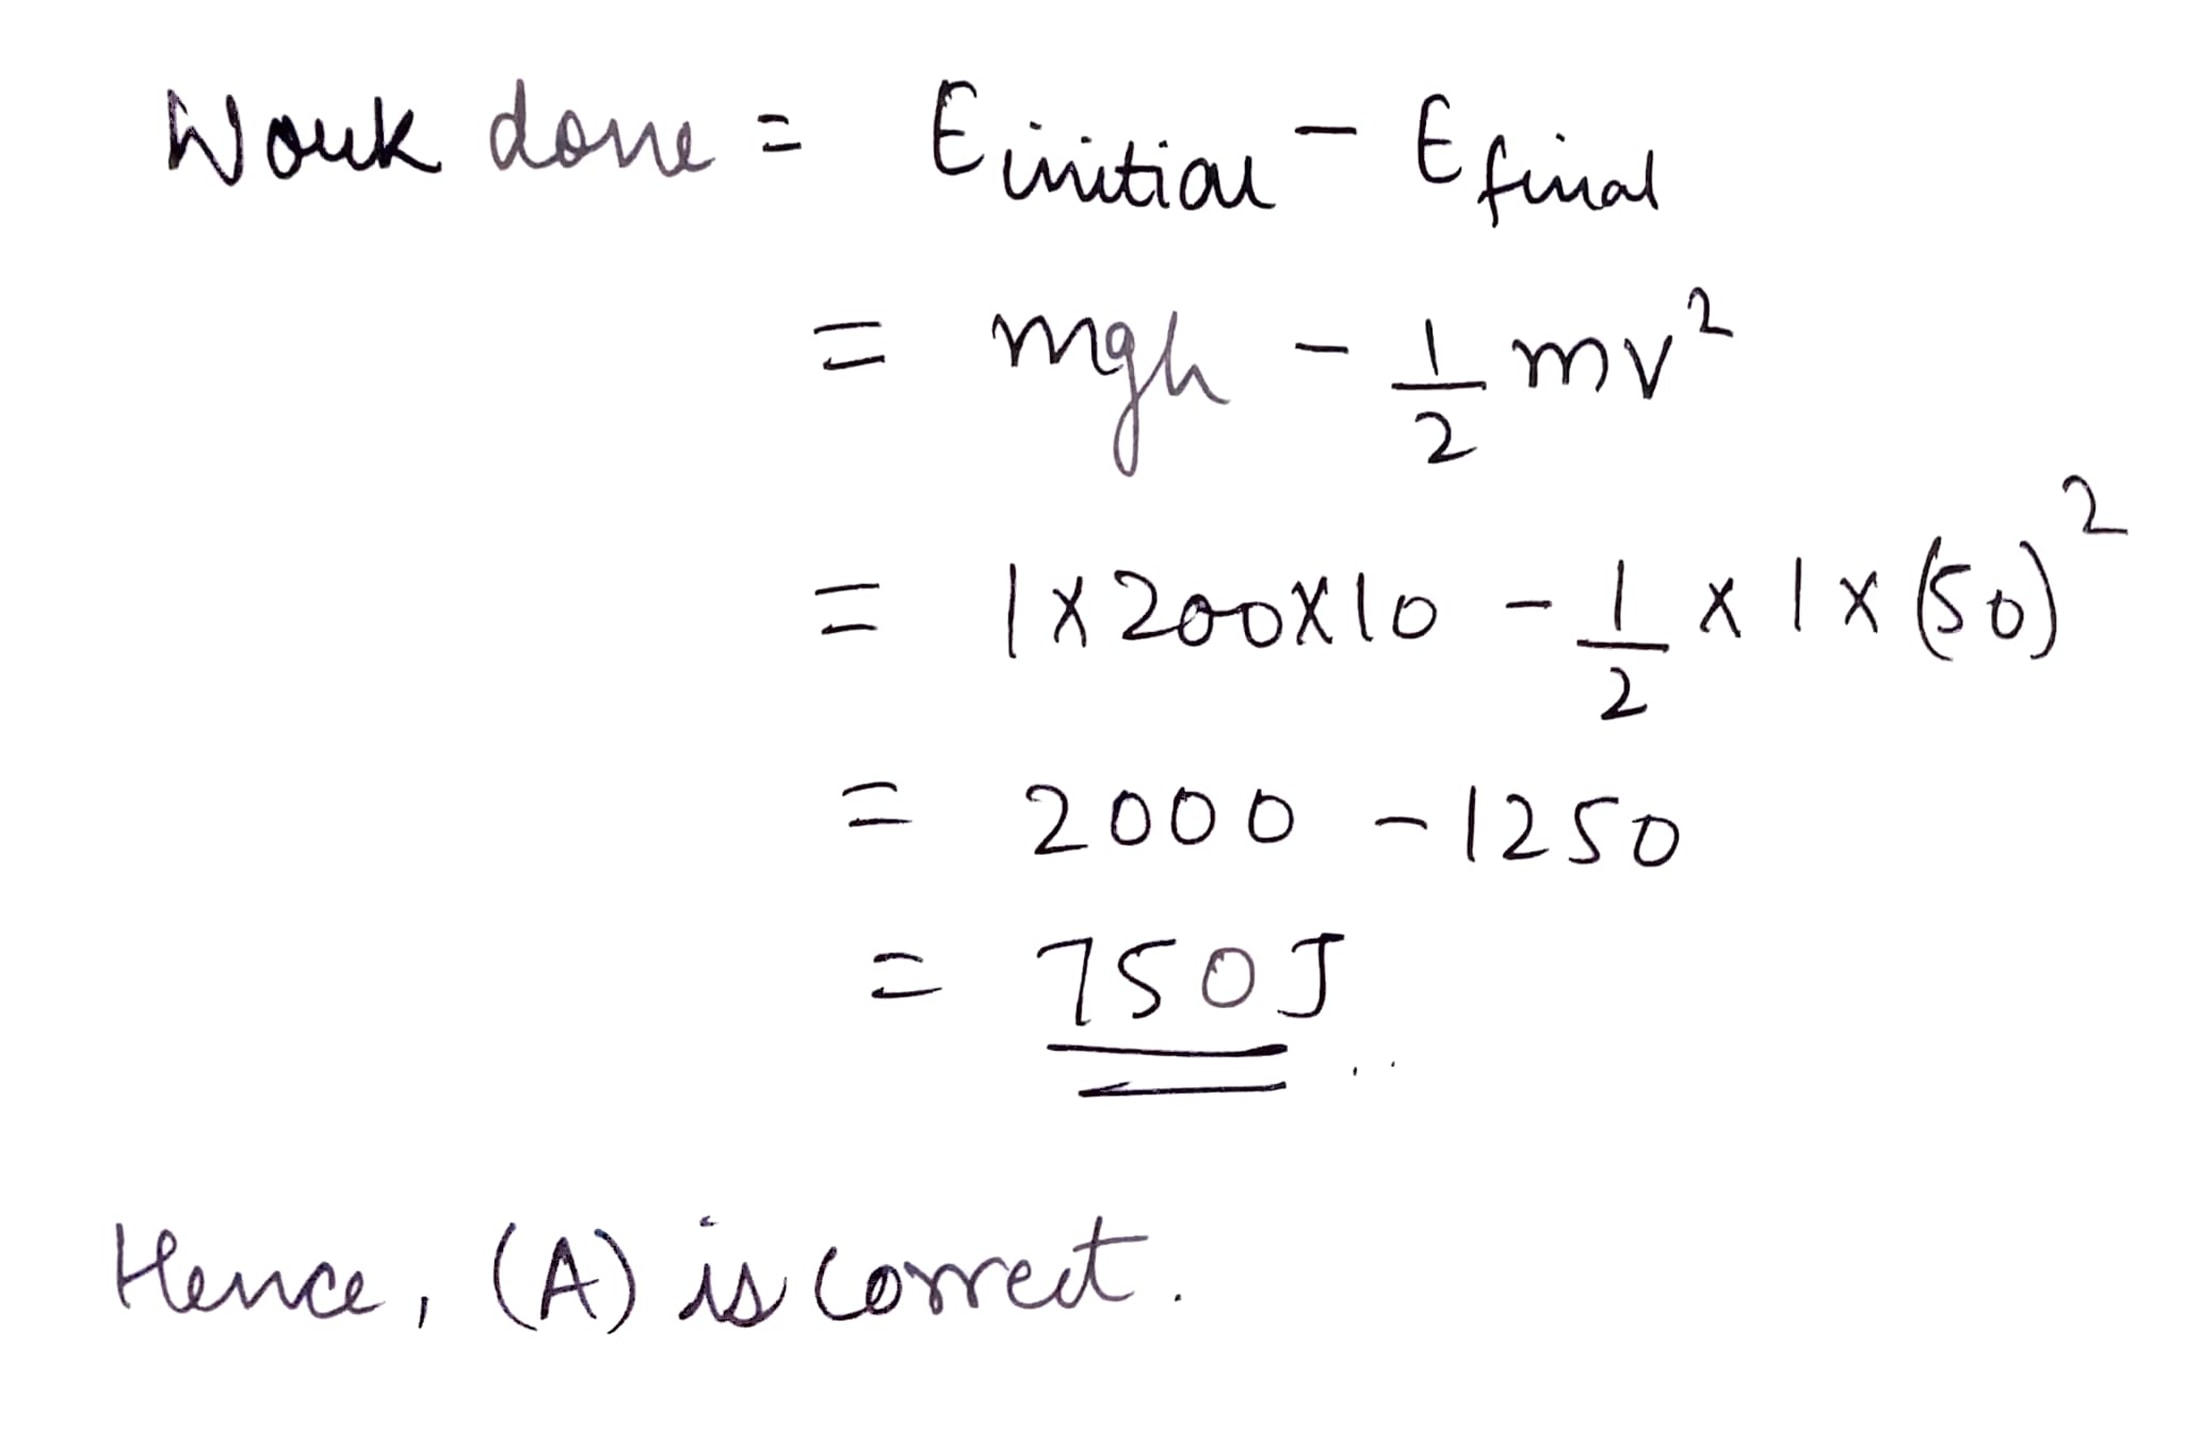 Work done = E initial - E final
= mgh - 1/2 mv²
= 1 x 200 x 10 - 1/2 x 1 x (50)²
= 2000 - 1250
= 750J
Hence, (A) is correct.